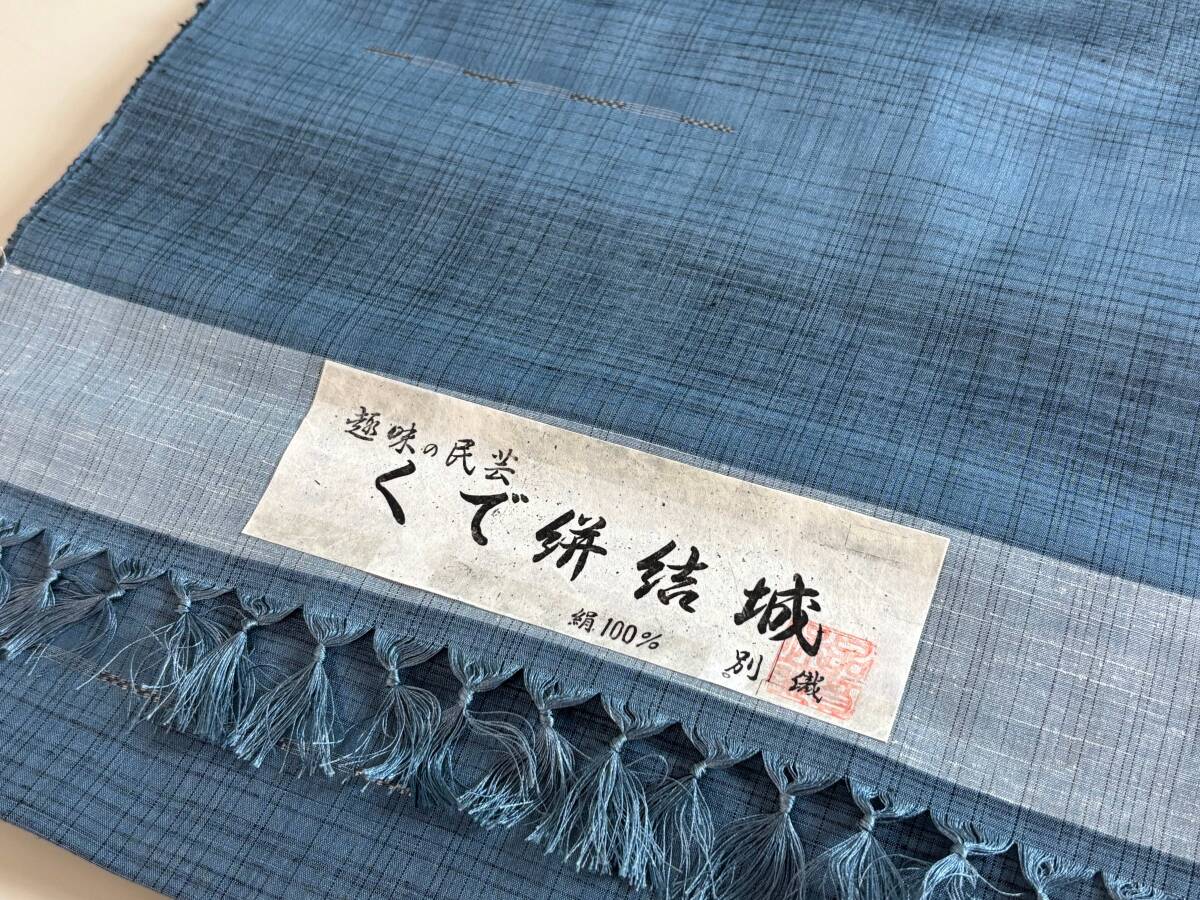 趣味の民芸
くで絣結城
絹100%
別織